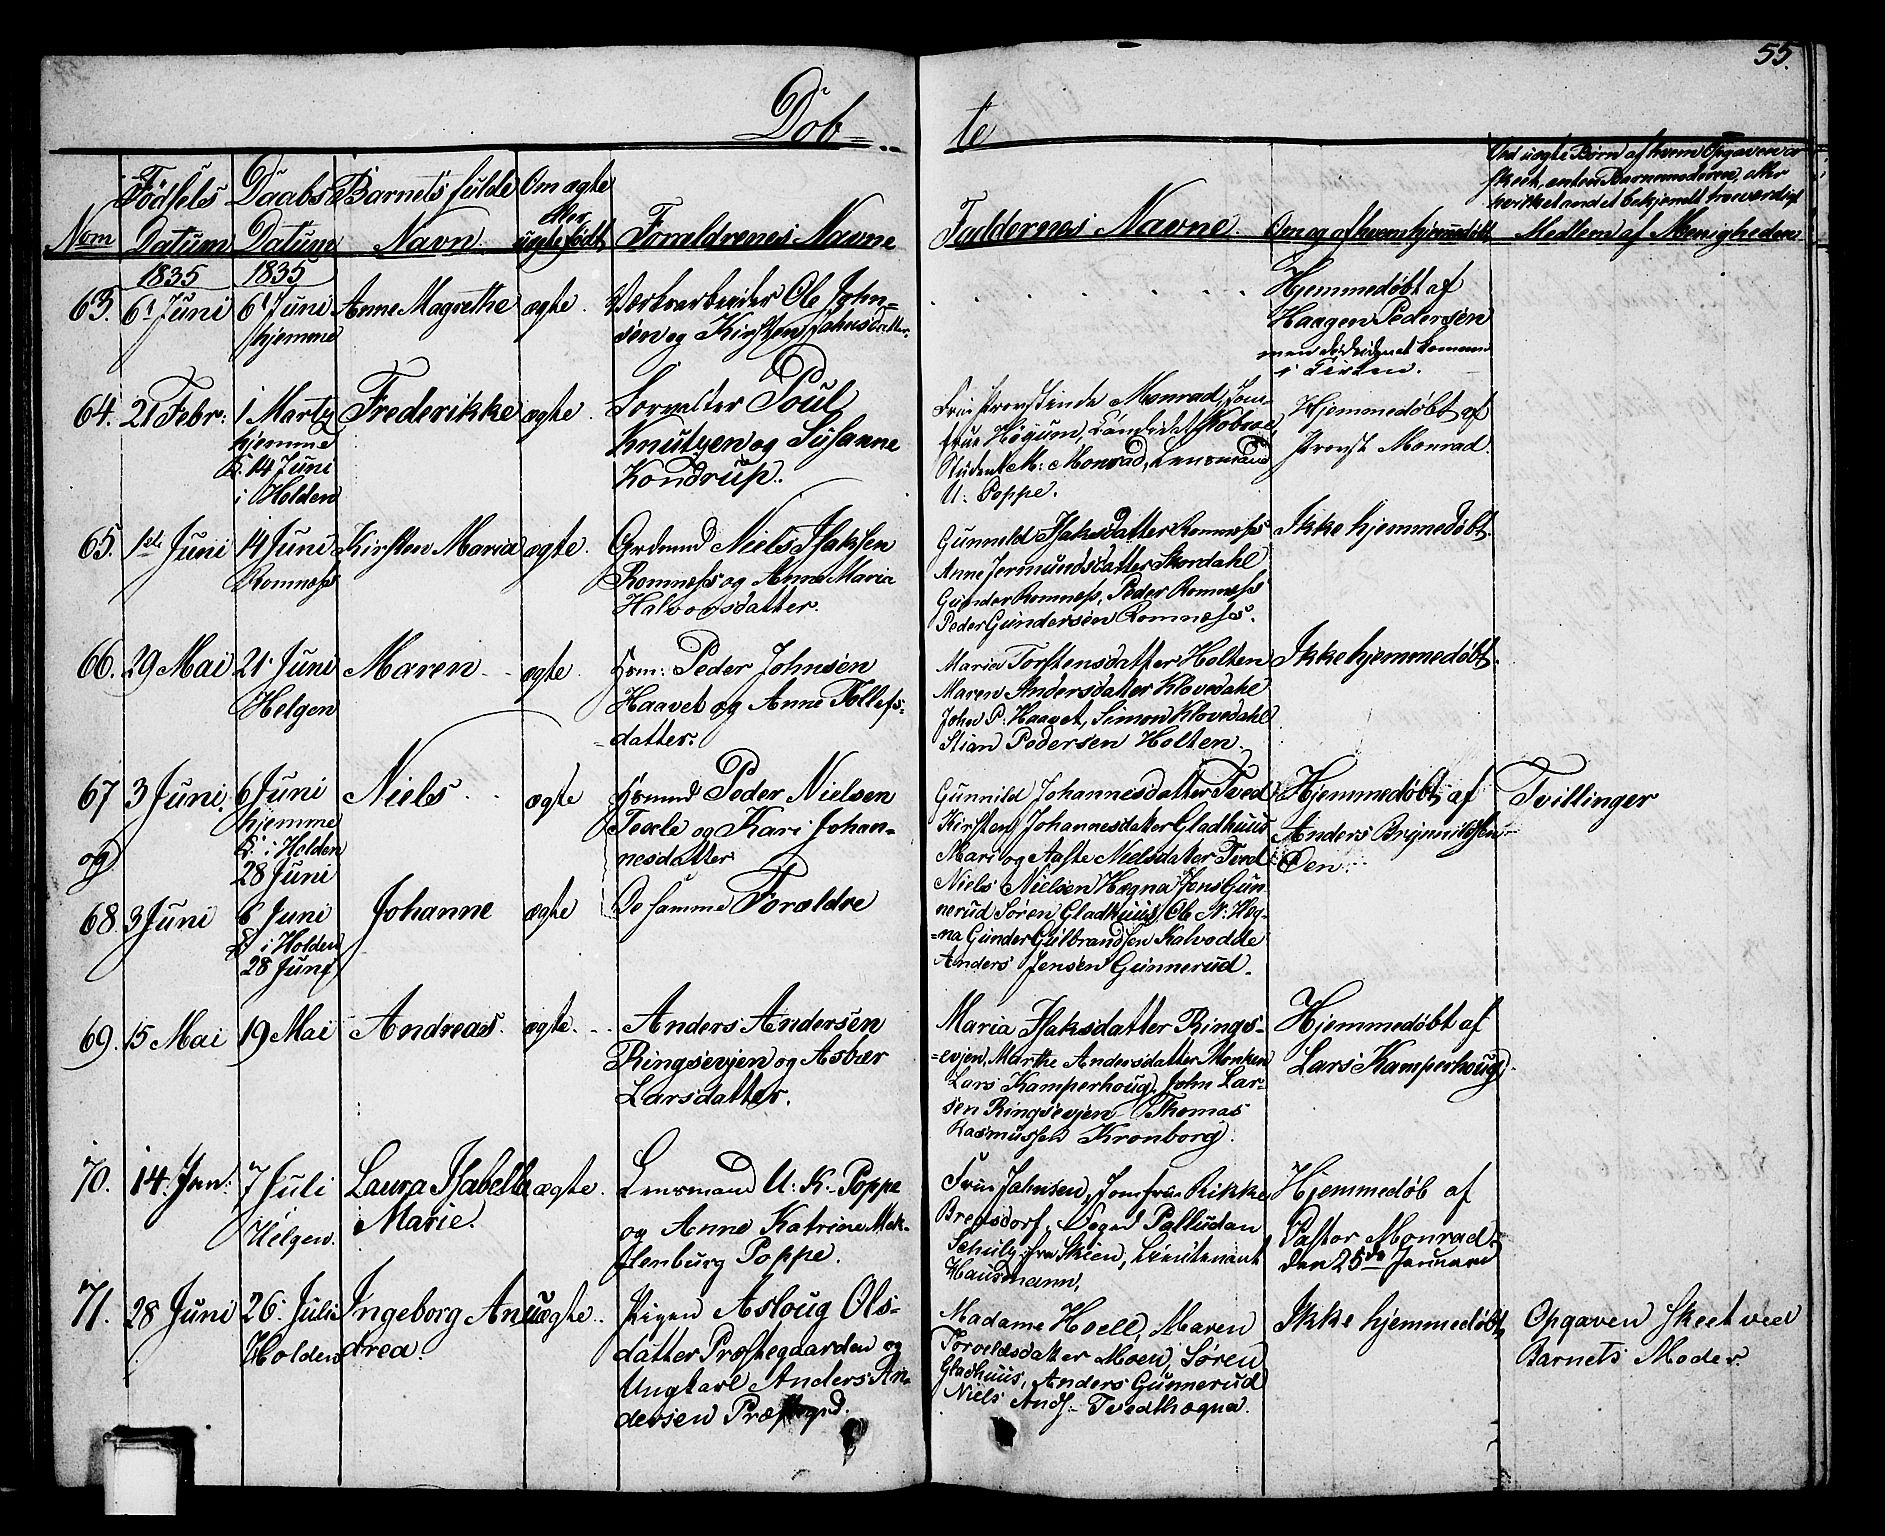 55.
Döb=
te
Nom
Födsels Datum
Daabs Datum
Barnets fulde Navn
Om ægte eller uægte födt
Foraldrenes Navne
Faddernes Navne.
Om og af hvem hjemmedöbt
Ved uægte Børn af hvem Opgaven er
skeet, enten Barnemoderen, eller
hvilket andet bekjendt troeværdigt
Medlem af Menigheden
1835
1835
63. 6t Juni
6t Juni
hjemme
Anne Magrethe
ægte.
Værkarbeider Ole John=
sen og Kirsten Johnsdatter.
Hjemmedøbt af
Haagen Pedersen
i Kirken.
64. 21 Febr:
1 Marty
hjemme
14 Juni
i Holden
Frederikke
ægte.
Forvalter Poul
Knutzen og Susanne
Kondrup.
Frue Provstinde Monrad, Jom=
frue Høgum, Candidat
Student M: Monrad, Lensmand
U. Poppe.
Hjemmedøbt af
Provst Monrad.
65. 1ste Juni
14 Juni
Romness
Kirsten Maria
ægte.
Niels Isaksen
Romness og Anne Maria
Halvorsdatter.
Gunneld Isaksdatter Romness
Anne Jermundsdatter Skordahl
Gunder Romness, Peder Romness
Peder Gundersen Romness.
Ikke hjemmedøbt.
66. 29 Mai
21. Juni
Helgen
Maren
ægte.
Peder Johnsen
Haavet og Anne Tollefs=
datter.
Maria Torstensdatter Holten
Maren Andersdatter Klovedahl
John P. Haavet, Simon Klovedahl
Stian Pedersen Holten.
Ikke hjemmedøbt.
67 3 Juni.
6 Juni
hjemme
i Holden
28 Juni
Niels
ægte
Peder Nielsen
og Kari Johan=
nesdatter
Gunnild Johannesdatter Tved
Kirsten Johannesdatter Gladhuus
Mari og Aaste Nielsdatter Tved
Niels Nielsen Hægna Jens Gun=
nerud Søren Gladhuus, Ole N. Heg=
=na Gunder Gulbrandsen Kalvodde
Anders Jensen Gunnerud.
Hjemmedøbt af
Anders Brynnildsen
Øen.
Tvillinger
og
68. 3 Juni
6 Juni
i Holden
28 Juni
Johanne
ægte
De samme Forældre
69. 15 Mai
19 Mai
Andreas.
ægte.
Anders Andersen
Ringsevjen og Asbær
Larsdatter.
Maria Isaksdatter Rings=
=evjen, Marthe Andersdatter Monken
Lars Kamperhoug, John Lar=
sen Ringsevjen Thomas
Rasmussen Kronborg.
Hjemmedøbt af
Lars Kamperhoug.
70. 14. Jan:
7 Juli
Helgen.
Laura Isabelle
Marie.
ægte.
Lensmand U. K. Poppe
og Anne Katrine Mek=
lenburg Poppe.
Frue Jahnsen, Jomfrue Rikke
Bregsdorf, Palludan
Schulz fra Skien, Lieutenant
Hausmann.
Hjemmedøb af
Pastor Monrad.
den 25de Januari
71. 28 Juni
26. Juli
Holden
Ingeborg An=
drea.
uægte.
Pigen Asloug Ols=
datter Præstegaarden og
Ungkarl Anders An=
dersen Præstegrd.
Madame Hoell, Maren
Torvelsdatter Moen, Søren
Gladhuus, Anders Gunnerud
Niels Ands. Tvedthægna.
Ikke hjemmedøbt,
Opgaven skeet ved
Barnets Moder.